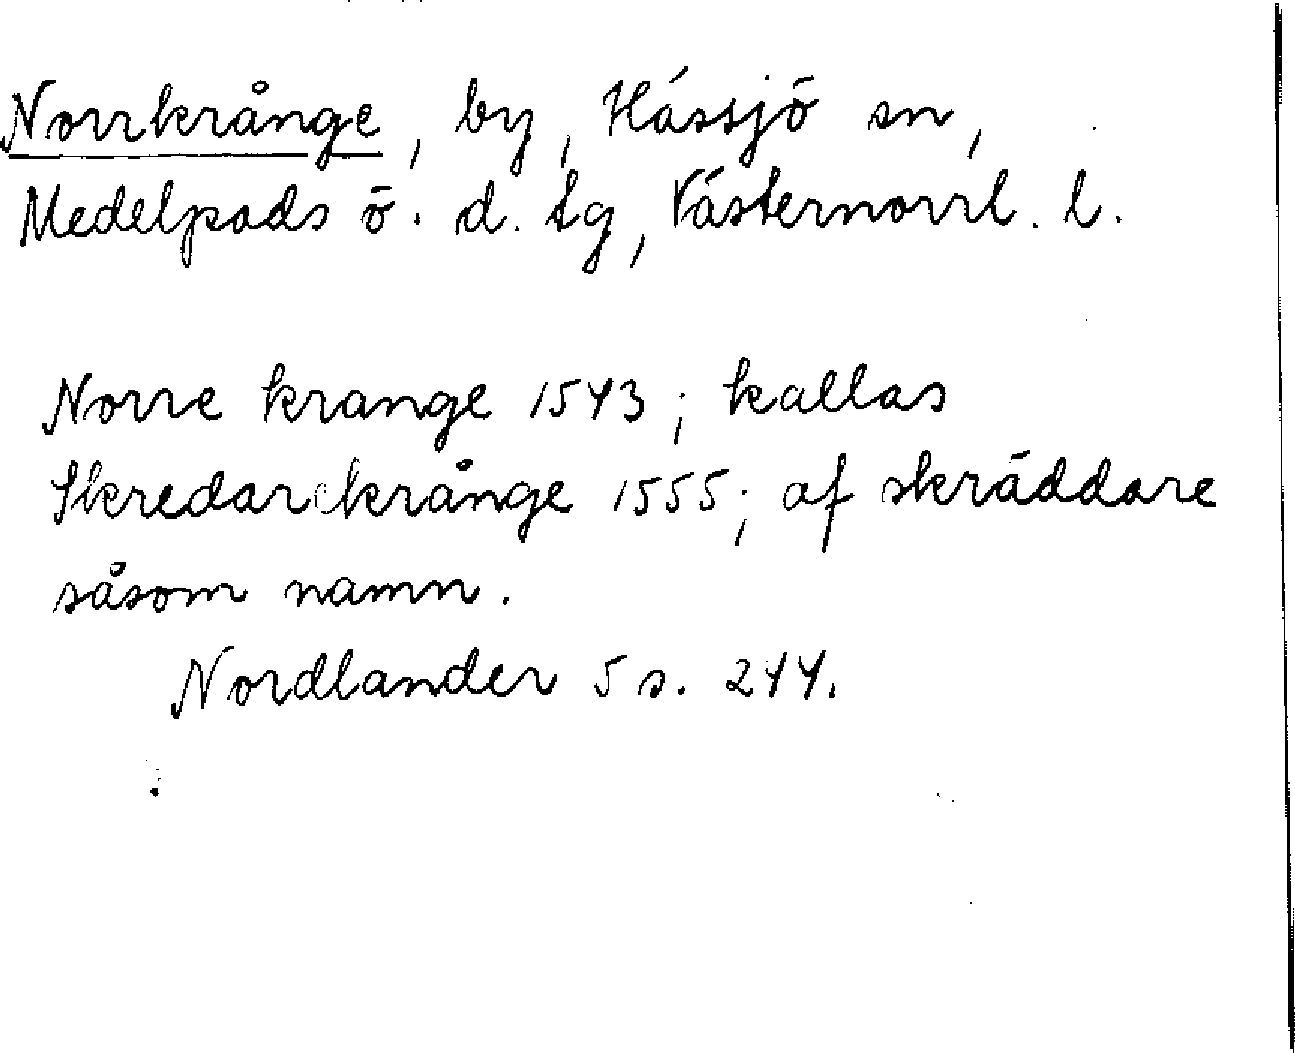 Norrkrånge, by, Hässjö sn,
Medelpads ö. d. tg, Västernorrl. l.
Norre krange 1543; kallas
Skredarekrånge 1555; af skräddare
såsom namn.
Nordlander 5 s. 244.